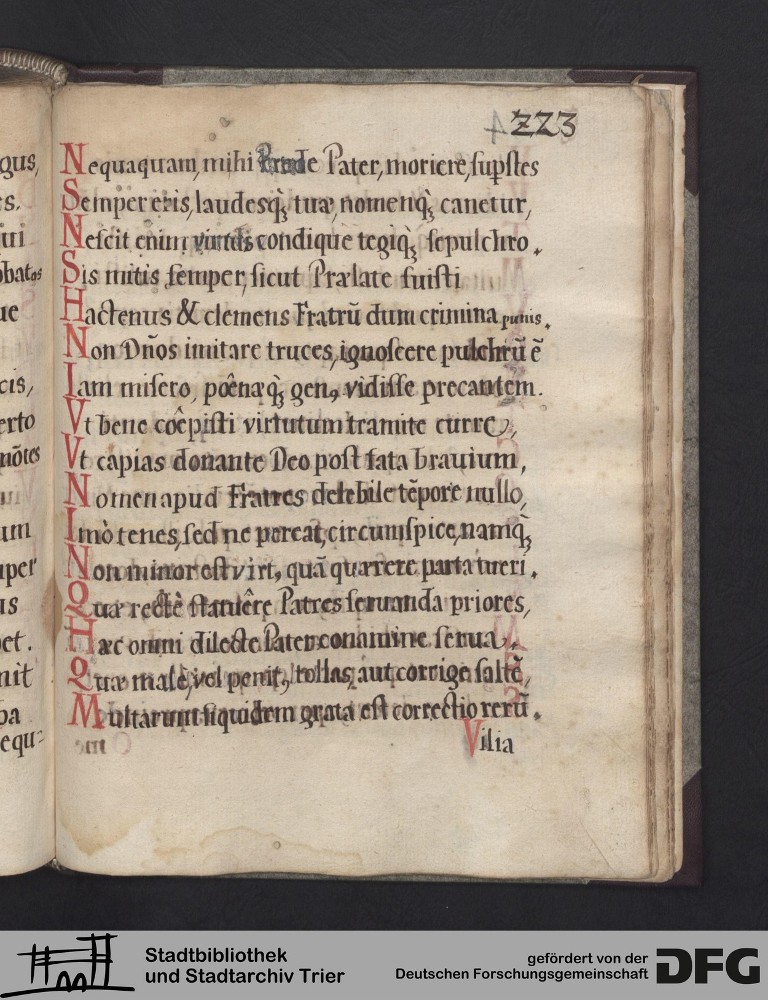 gus,
s.
ui
obatos
ue
cis,
erto
nõtes
um
uper
us
et.
nit
ba
equ=
223
Nequaquam, mihi Pater, moriere, supstes
Semper eris, laudesq̀; tuæ, nomenq̀; canetur,
Nescit enim virtus condique tegiq̀; sepulchro.
Sis mitis semper, sicut Prælate fuisti
Hactenus & clemens Fratrũ dum crimina punis.
Non Dños imitare truces, ignoscere pulchrũ ẽ
Iam misero, poênaq̀; genꝰ vidisse precantem.
Vt bene coêpisti virtutum tramite curre,
Vt capias donante Deo post fata brauium,
Nomen apud Fratres delebile tẽpore nullo,
Imò tenes, sed ne pereat, circumspice, namq̀;
Non minor est virtꝰ quã quærere parta tueri.
Quæ rectè statuêre Patres seruanda priores,
Hæc omni dilecte Pater conamine serua,
Quæ malè, vel penitꝰ tollas, aut corrige saltẽ,
Multarum siquidem grata est correctio rerũ.
Vilia
Stadtbibliothek
und Stadtarchiv Trier
gefördert von der
Deutschen Forschungsgemeinschaft
DFG